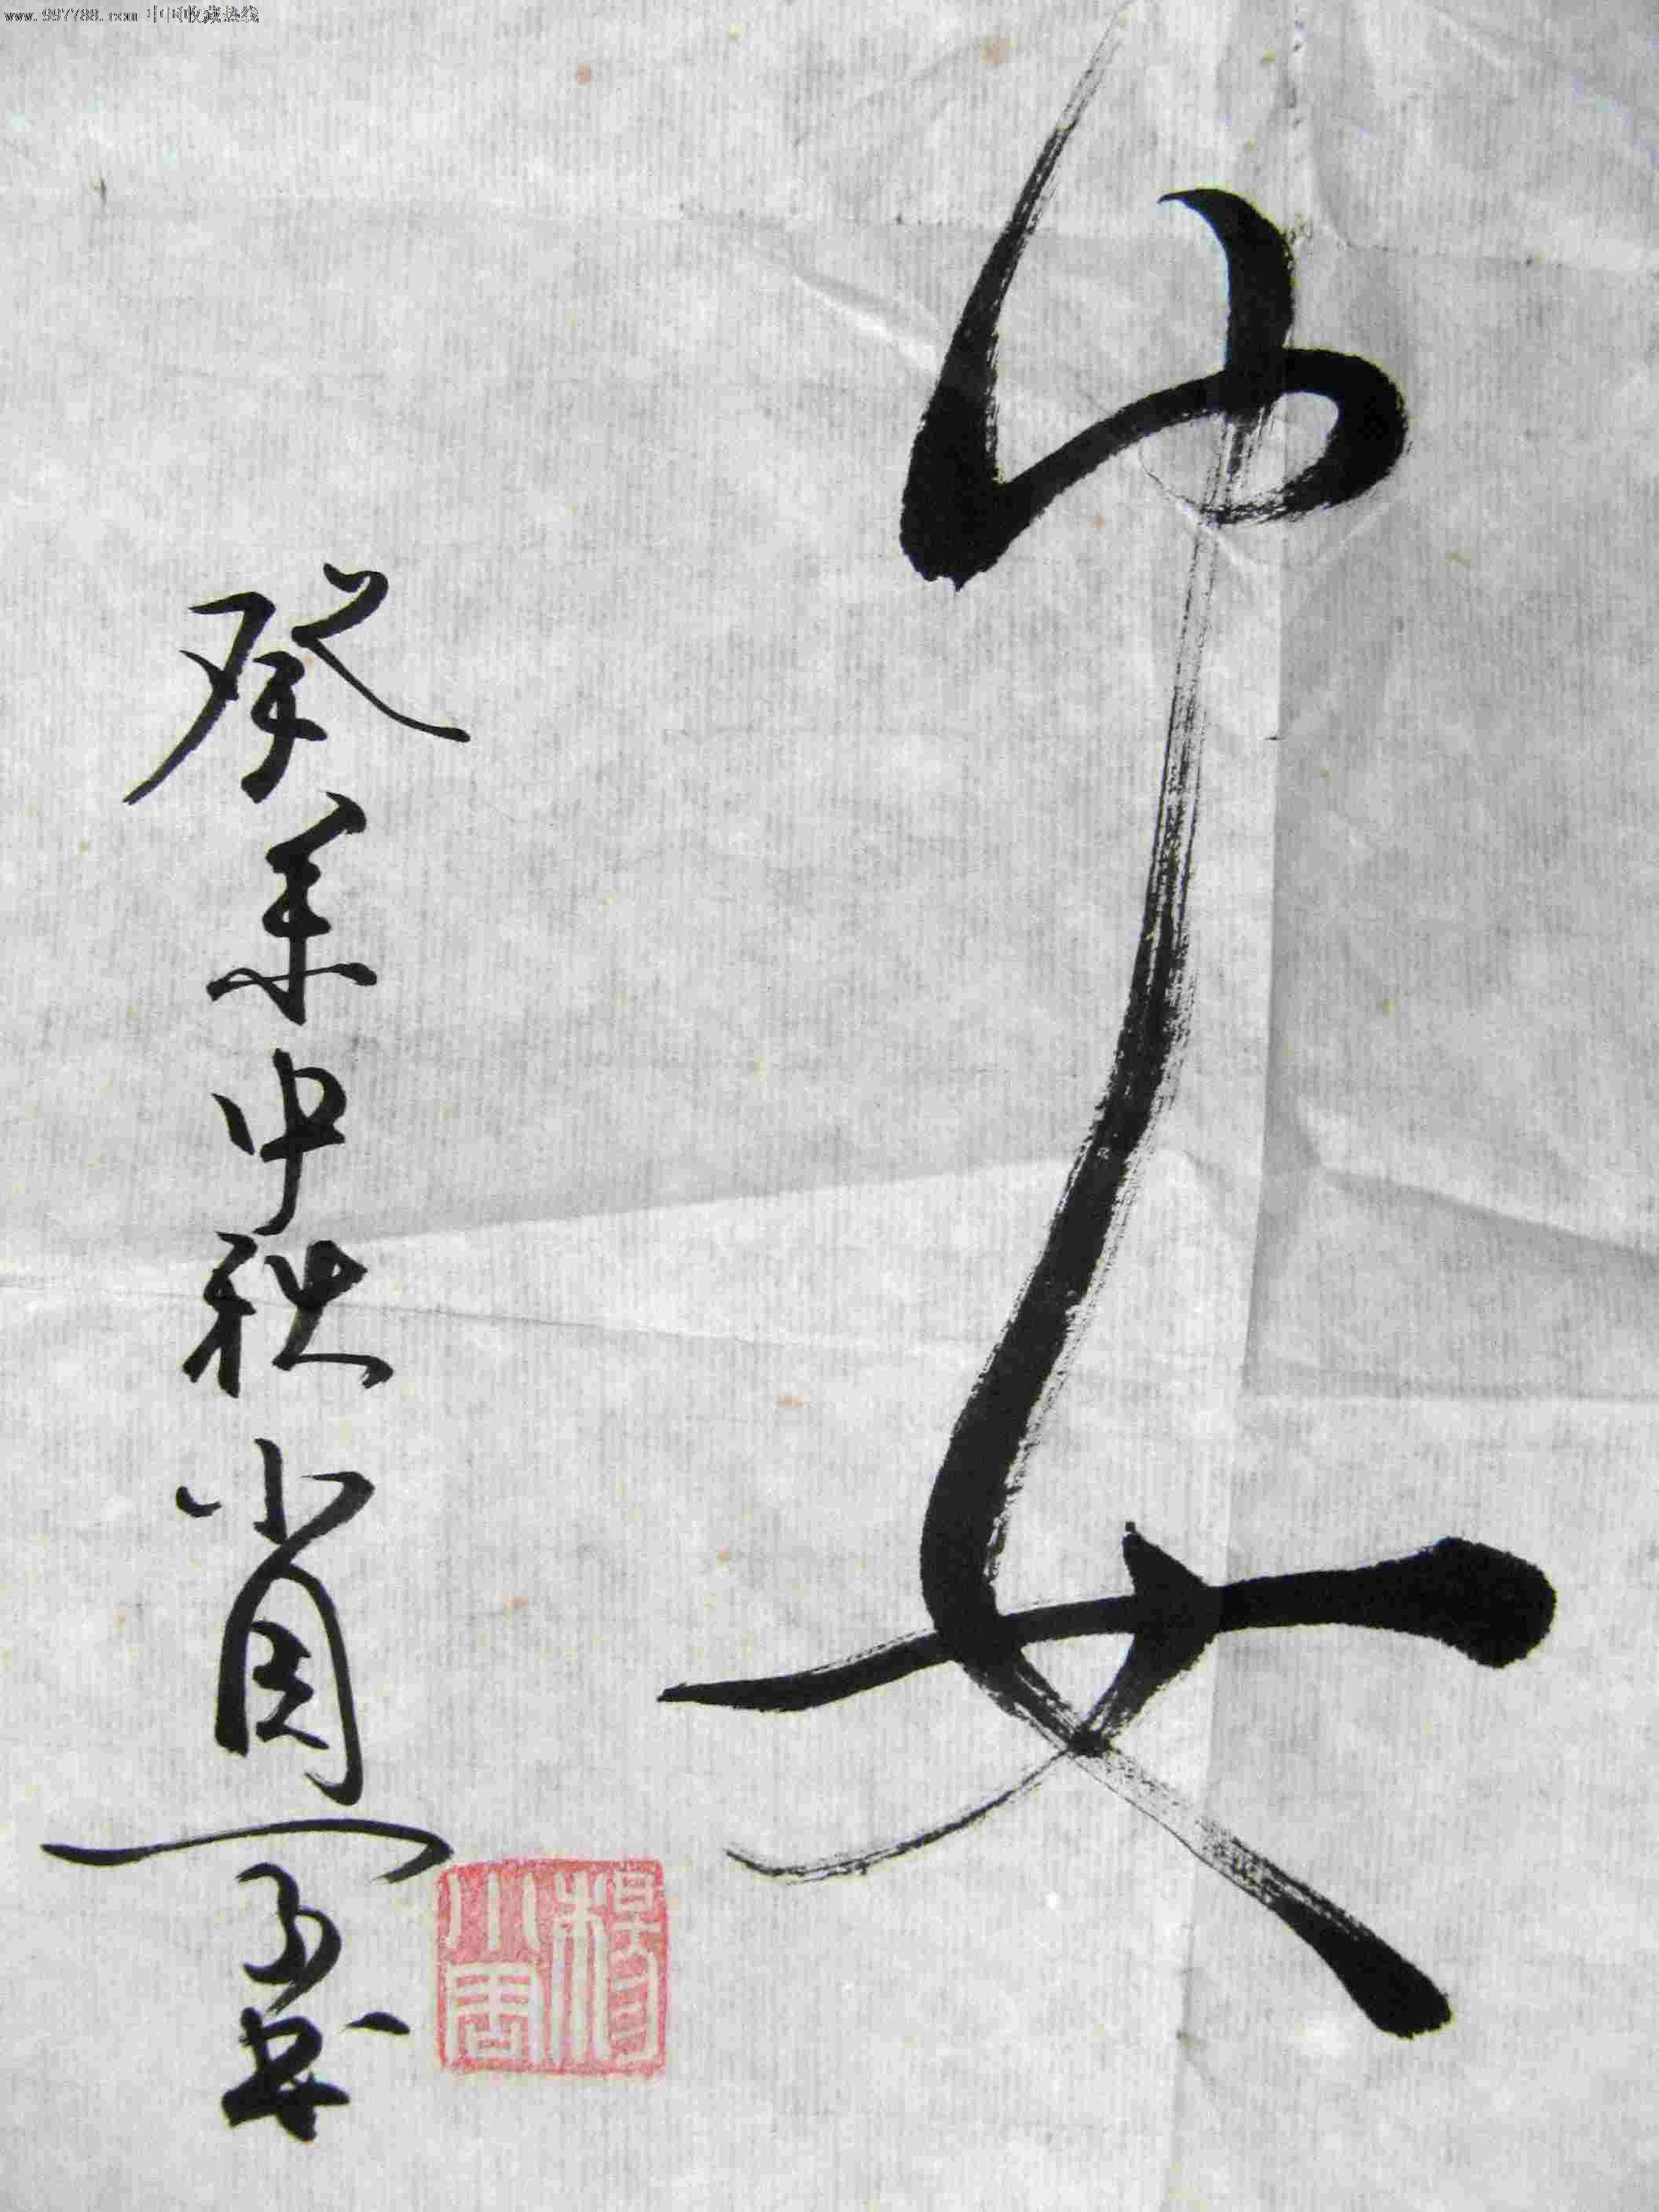 www.997788.com 中国收藏热线
安
癸未中秋小周书
楊小周